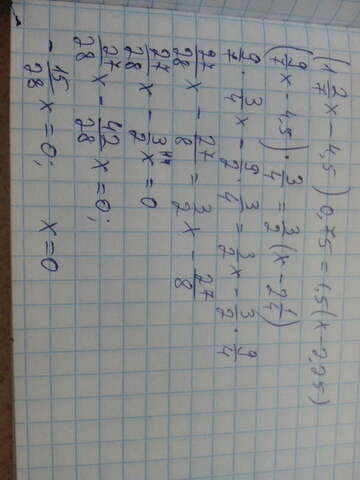 (1 2/7 x - 4,5) 0,75 = 1,5(x - 2,25)
(9/7 x - 4,5) · 3/4 = 3/2 (x - 2 1/4)
9/7 · 3/4 x - 9/2 · 3/4 = 3/2 x - 3/2 · 9/4
27/28 x - 27/8 = 3/2 x - 27/8
27/28 x - 3/2 \14 x = 0
27/28 x - 42/28 x = 0;
- 15/28 x = 0; x = 0